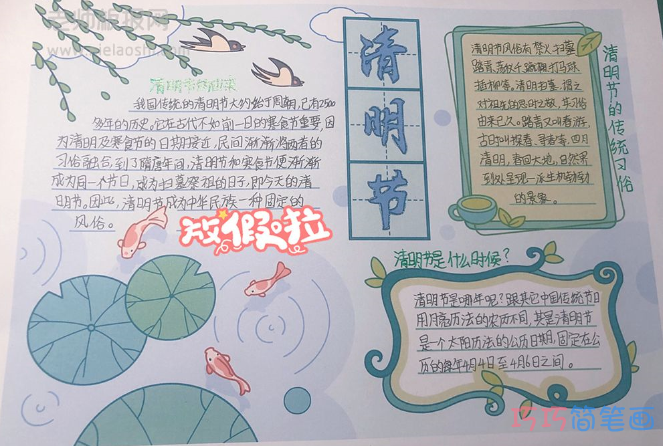 老师板报网
www.dielaoshi.com
清明节的由来
我国传统的清明节大约始于周朝,已有2500
多年的历史。它在古代不如前一日的寒食节重要,因
为清明及寒食节的日期接近,民间渐渐将两者的
习俗融合,到了隋唐年间,清明节和寒食节便渐渐
成为同一个节日,成为扫墓祭祖的日子,即今天的清
明节。因此,清明节成为中华民族一种固定的
风俗。
放假啦
清
明
节
清明节风俗有禁火、扫墓
踏青、荡秋千、蹴鞠、打马球
插柳等。清明扫墓,谓之
对祖先的思时之敬,其习俗
由来已久。踏青又叫春游,
古时叫探春、寻春等,四月
清明,春回大地,自然界
到处呈现一派生机勃勃
的景象。
清明节的传统习俗
清明节是什么时候?
清明节是哪年呢?跟其它中国传统节日
用月亮历法的农历不同,其是清明节
是一个太阳历法的公历日期,固定在公
历的每年4月4日至4月6日之间。
巧巧简笔画